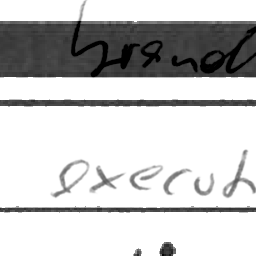 brand
execut